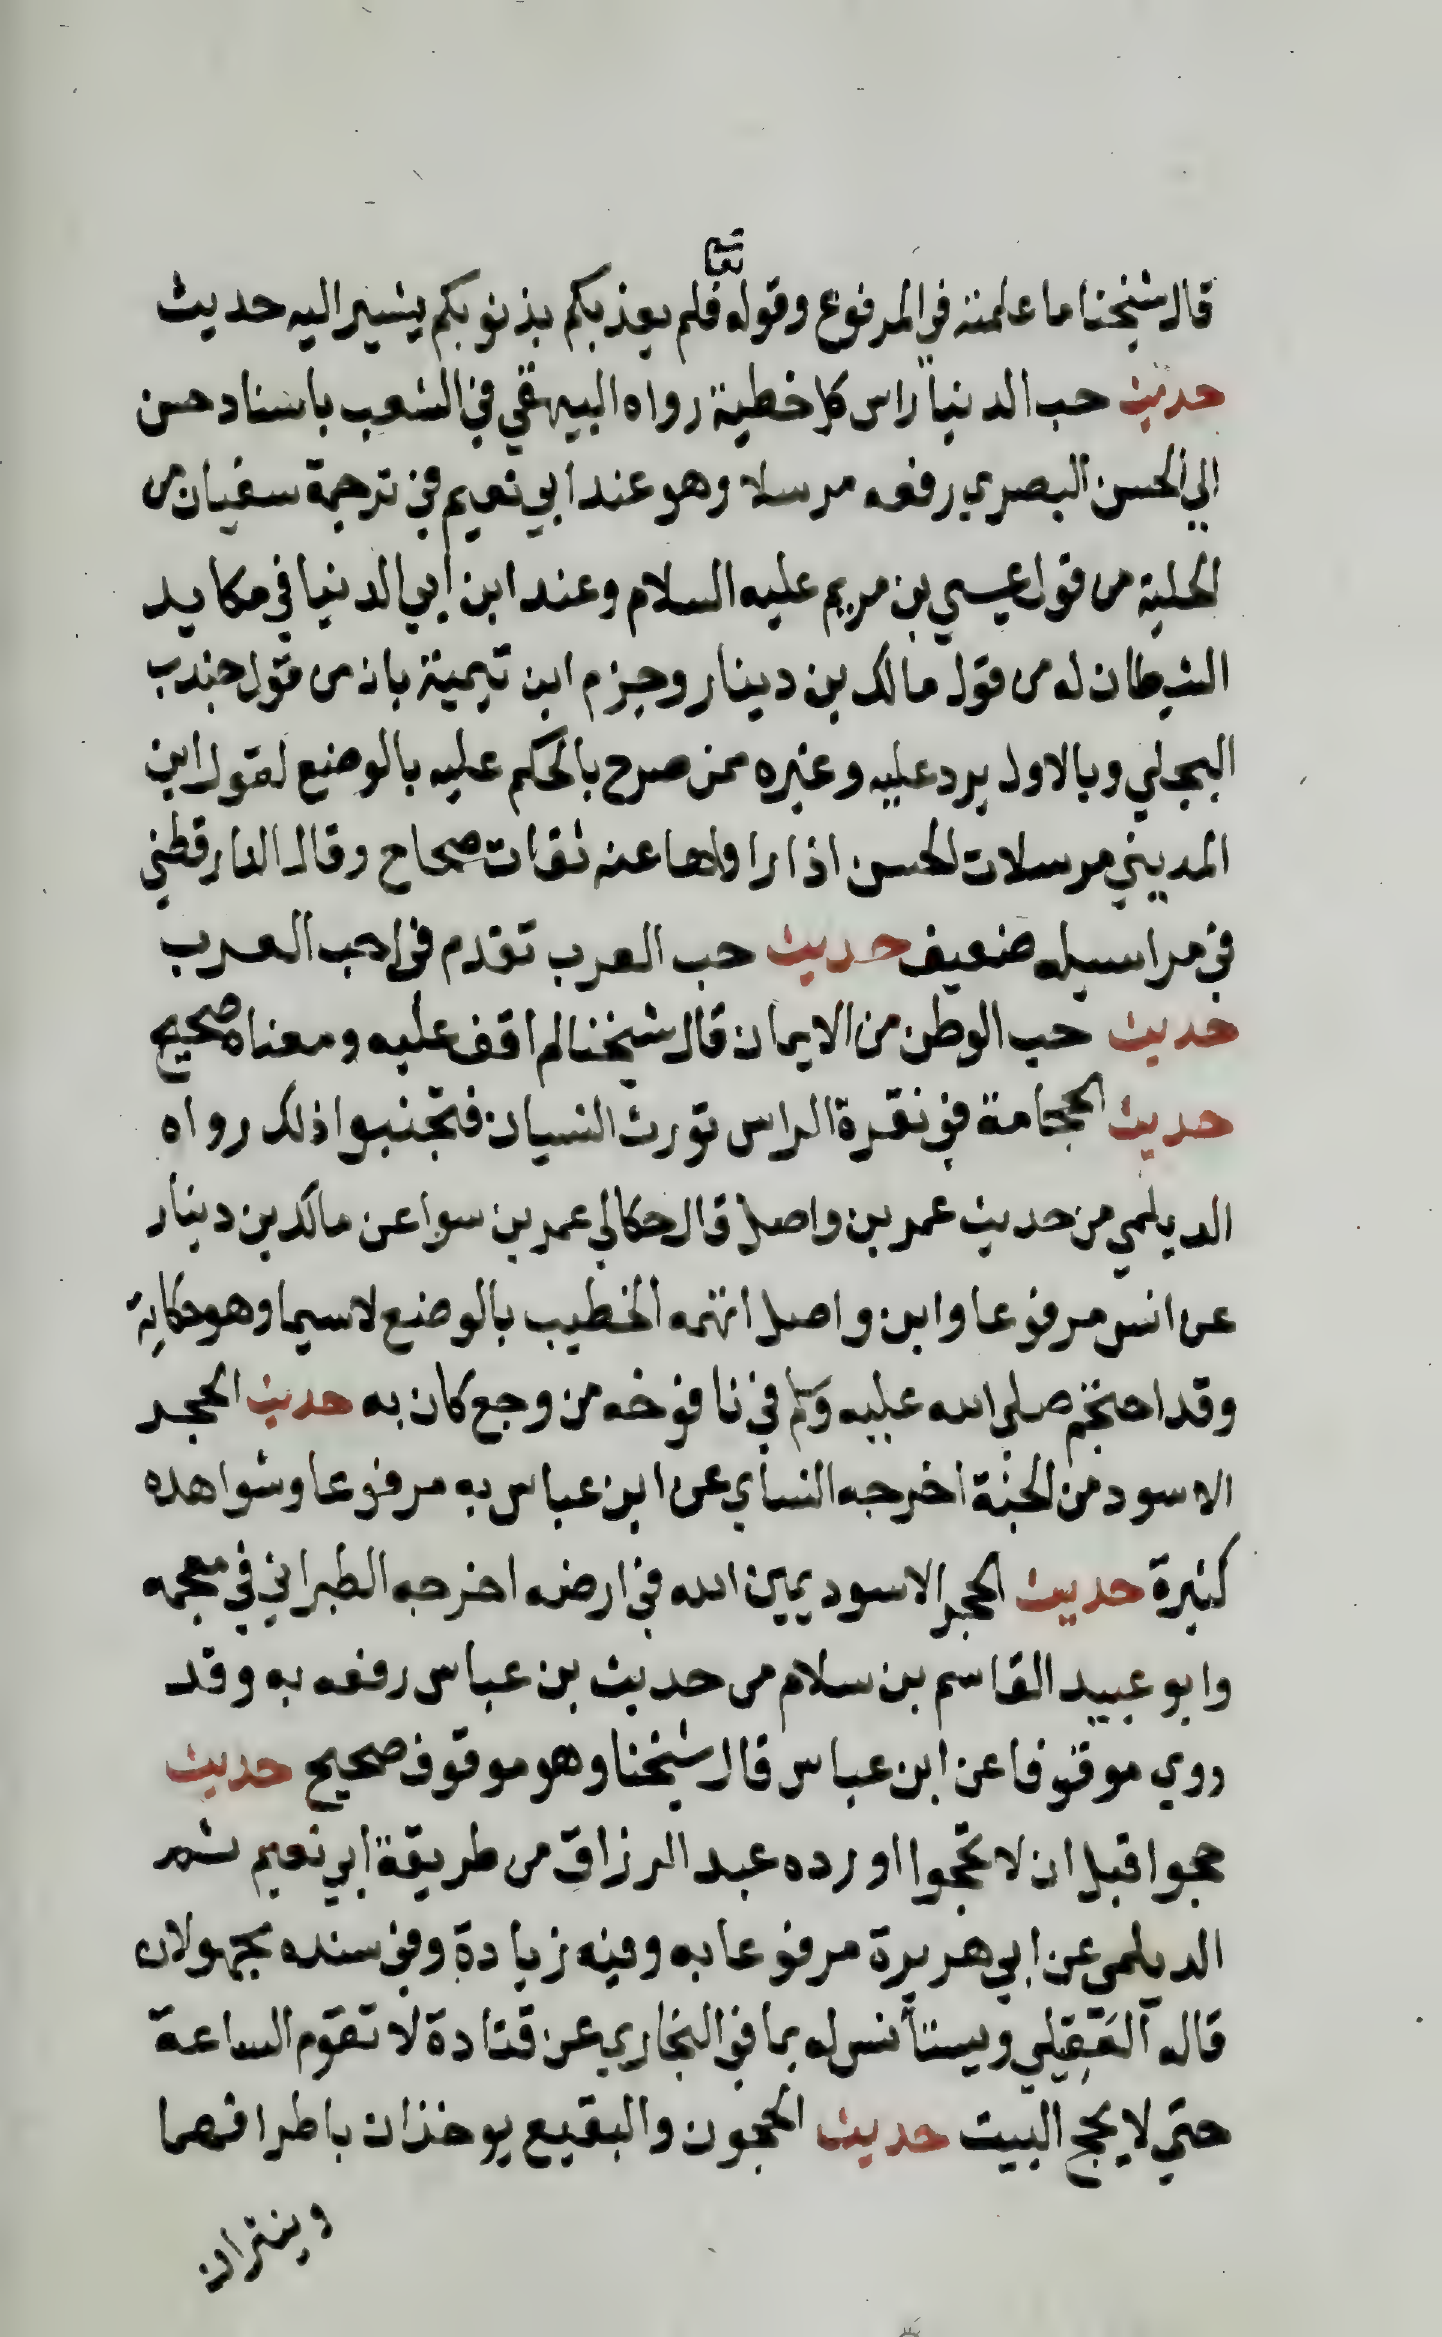 تعا
قال شيخنا ما علمته في المرفوع وقوله فلم يعذبكم بذنوبكم يشير اليه حديث
حديث حب الدنيا راس كل خطية رواه البيهقي في الشعب باسناد حسن
الي الحسن البصري رفعه مرسلا وهو عند ابي نعيم في ترجمة سفيان من
الحلية من قول عيسي بن مريم عليه السلام وعند ابن ابي الدنيا في مكايد
الشيطان له من قول مالك بن دينار وجزم ابن تيمية بانه من قول جندب
البجلي وبالاول يرد عليه وغيره ممن صرح بالحكم عليه بالوضع لقول ابن
المديني مرسلات الحسن اذا رواها عنه ثقات صحاح وقال الدارقطني
في مراسيله ضعيف حديث حب العرب تقدم في احب العرب
حديث حب الوطن من الايمان قال شيخنا لم اقف عليه ومعناه صحيح
حديث الحجامة في نقرة الراس تورث النسيان فتجنبوا ذلك رواه
الديلمي من حديث عمر بن واصل قال حكا لي عمر بن سوا عن مالك بن دينار
عن انس مرفوعا وابن واصل اتهمه الخطيب بالوضع لاسيما وهو حكاية
وقد احتجم صلي الله عليه وسلم في نافوخه من وجع كان به حديث الحجر
الاسود من الجنة اخرجه النساي عن ابن عباس به مرفوعا وشواهده
كثيرة حديث الحجر الاسود يمين الله في ارضه اخرجه الطبراني في معجمه
وابو عبيد القاسم بن سلام من حديث بن عباس رفعه به وقد
روي موقوفا عن ابن عباس قال شيخنا وهو موقوف صحيح حديث
حجوا قبل ان لا تحجوا اورده عبد الرزاق من طريقة ابي نعيم ثم
الديلمي عن ابي هريرة مرفوعا به وفيه زيادة وفي سنده مجهولان
قاله العقيلي ويستأنس له بما في البخاري عن قتادة لا تقوم الساعة
حتي لا يحج البيت حديث الحجون والبقيع يوخذان باطرافهما
وينثران